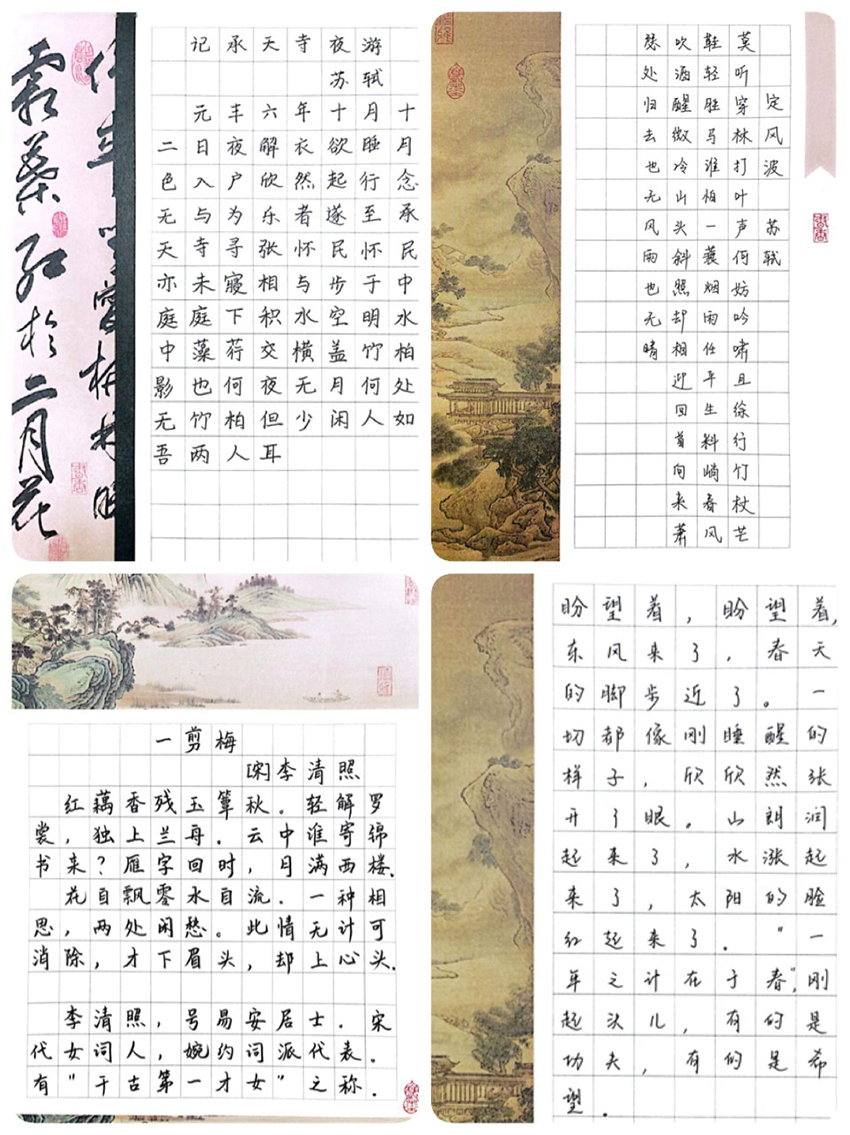 霜葉红於二月花
记承天寺夜游
苏轼
元丰六年十月十
二日夜解衣欲睡月
色入户欣然起行念
无与为乐者遂至承
天寺寻张怀民怀民
亦未寝相与步于中
庭庭下积水空明水
中藻荇交横盖竹柏
影也何夜无月何处
无竹柏但少闲人如
吾两人耳
定风波 苏轼
莫听穿林打叶声何妨吟啸且徐行竹杖芒
鞋轻胜马谁怕一蓑烟雨任平生料峭春风
吹酒醒微冷山头斜照却相迎回首向来萧
瑟处归去也无风雨也无晴
一剪梅
[宋]李清照
红藕香残玉簟秋。轻解罗
裳,独上兰舟。云中谁寄锦
书来?雁字回时,月满西楼。
花自飘零水自流。一种相
思,两处闲愁。此情无计可
消除,才下眉头,却上心头。
李清照,号易安居士。宋
代女词人,婉约词派代表。
有"千古第一才女"之称。
盼望着,盼望着,
东风来了,春天
的脚步近了。一
切都像刚睡醒的
样子,欣欣然张
开了眼。山朗润
起来了,水涨起
来了,太阳的脸
红起来了。"一
年之计在于春",刚
起头儿,有的是
功夫,有的是希
望。